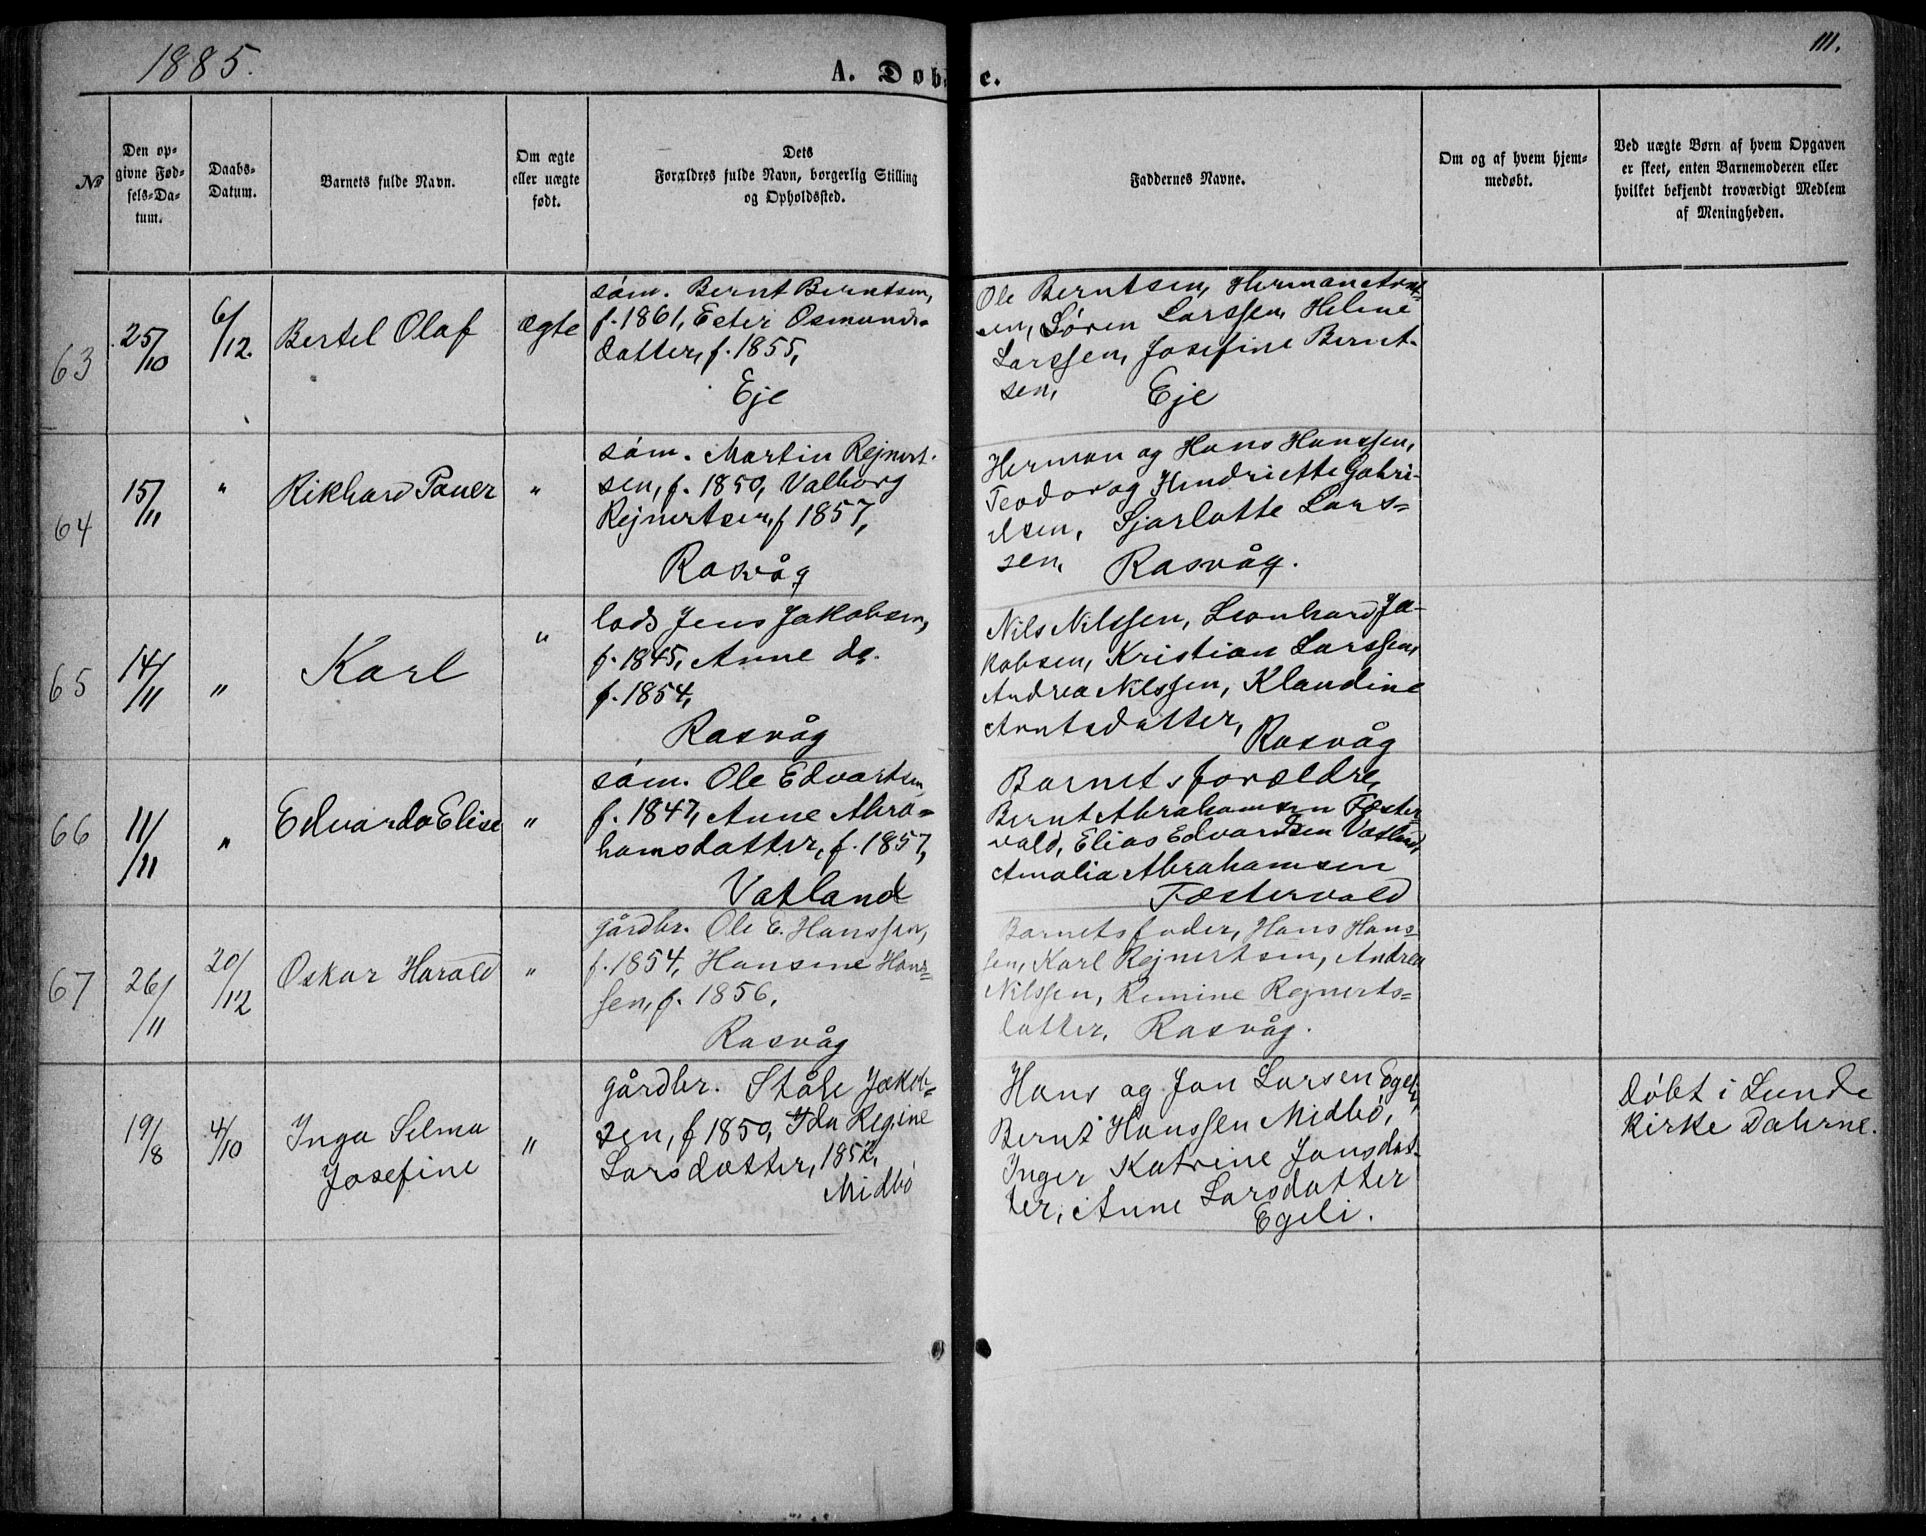 1885.
A. Døbte.
111.
№
Den op-
givne Fød-
sels-Da-
tum.
Daabs-
Datum.
Barnets fulde Navn.
Om ægte
eller uægte
født.
Dets
Forældres fulde Navn, borgerlig Stilling
og Opholdssted.
Faddernes Navne.
Om og af hvem hjem-
medøbt.
Ved uægte Børn af hvem Opgaven
er skeet, enten Barnemoderen eller
hvilket bekjendt troværdigt Medlem
af Meningheden.
63
25/10
6/12.
Bertel Olaf
ægte
søm. Bernt Berntsen,
f. 1861, Ester Osmunds-
datter, f. 1855,
Eje
Ole Berntsen, Herman
sen, Søren Larssen, Helene
Larssen, Josefine Bernt-
sen, Eje
64
15/11
"
Rikhard Pauer
"
søm. Martin Rejnert-
sen, f. 1850, Valborg
Rejnertsen, f 1857,
Rasvåg
Herman og Hans Hanssen,
Teodor og Hendriette Gabri-
elsen, Sjarlotte Lars-
sen, Rasvåg.
65
14/11
"
Karl
"
lods Jens Jakobsen,
f. 1845, Anne do.
f. 1854,
Rasvåg
Nils Nilssen, Leonhard Ja-
kobsen, Kristian Larssen,
Andrea Nilssen, Klaudine
Arntsdatter,
Rasvåg
66
11/11
"
Edvarda Elise
"
søm. Ole Edvartsen,
f. 1847, Anne Abra-
hamsdatter, f. 1857,
Vatland
Barnets forældre,
Bernt Abrahamsen Fæster-
vald, Elias Edvardsen Vatland,
Amalia Abrahamsen
Fæstervold
67
26/11
20/12
Oskar Harald
"
gårdbr. Ole E. Hanssen,
f. 1854, Hansine Hans-
sen, f. 1856.
Rasvåg
Barnets fader, Hans Hans-
sen, Karl Rejnertsen, Andrea
Nilssen, Remine Rejnerts-
datter, Rasvåg.
19/8
4/10
Inga Selma
Josefine
"
gårdbr. Ståle Jakob-
sen, f 1850, Ida Regine
Larsdatter, 1852,
Midbø
Hans og Jan Larsen Egeli,
Bernt Hanssen Midbø,
Inger Katrine Jansdat-
ter, Anne Larsdatter
Egeli.
Døbt i Lunde
kirke Dalerne.